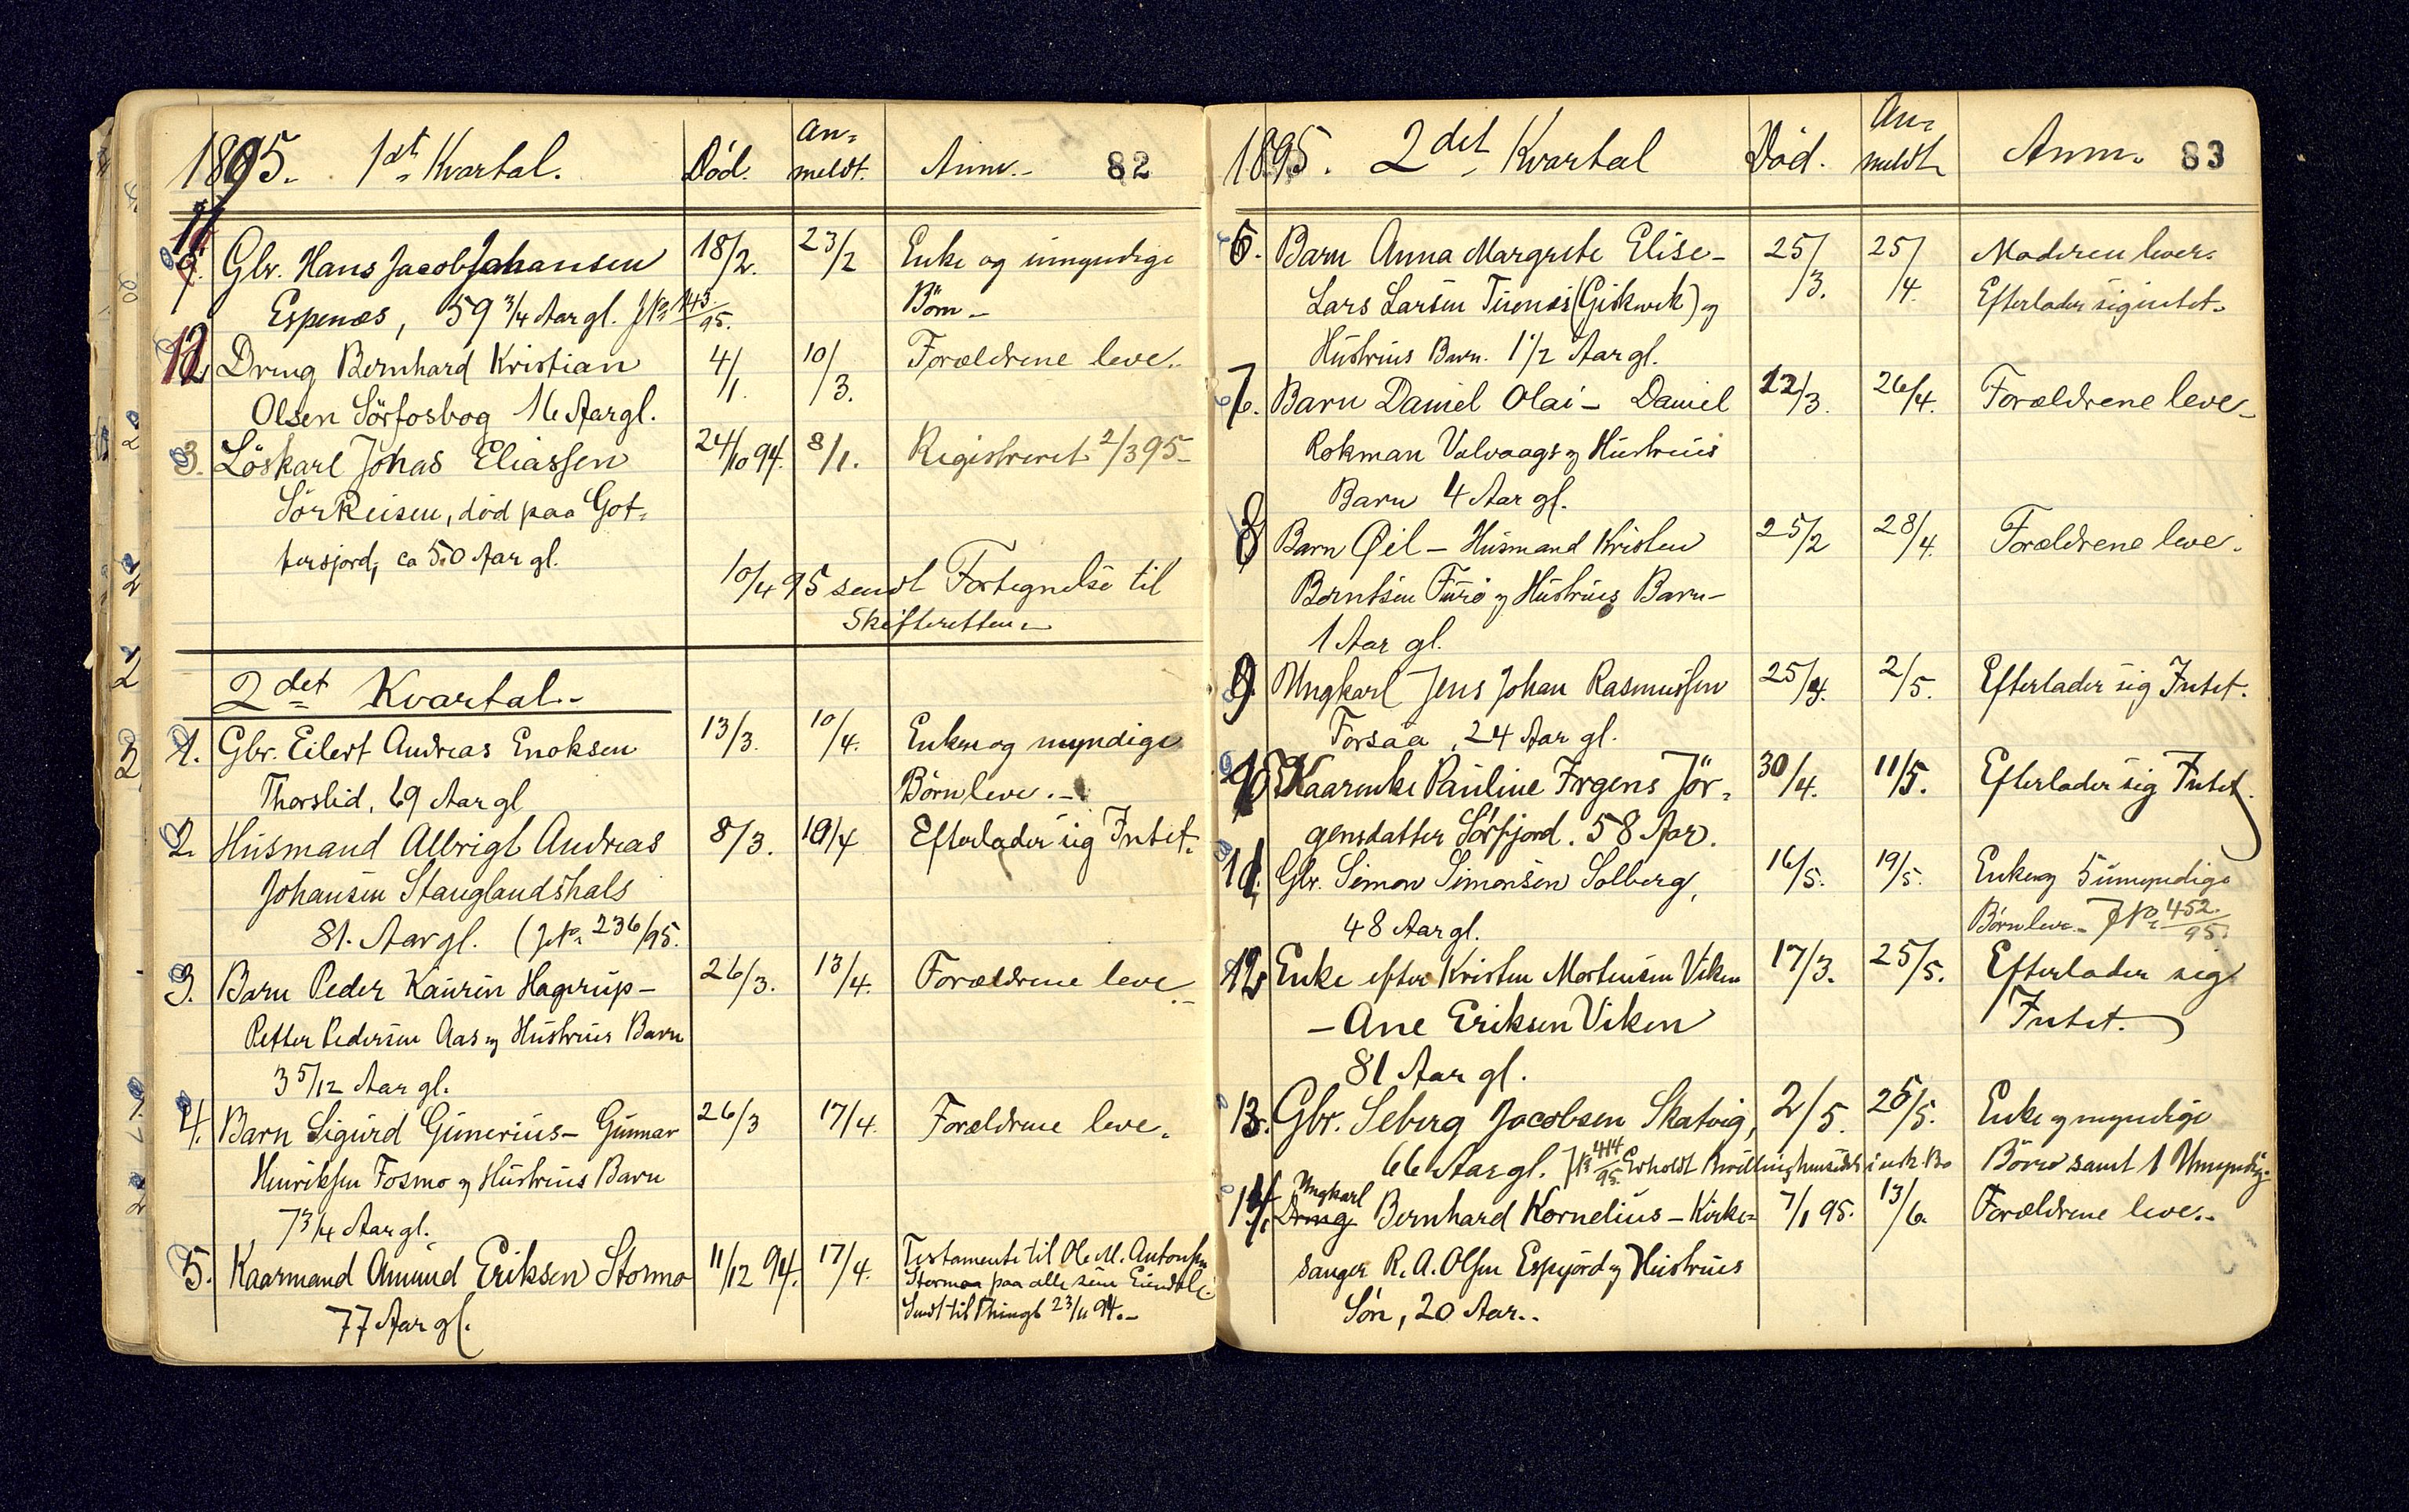 1895. 1st Kvartal. Död. An= meldt. Anm.- 82
11 Gbr. Hans Jacob Johansen 18/2. 23/2 Enke og umyndige
Espenæs, 59 3/4 Aar gl. JNo 143/95. Börn -
12 Dreng Bernhard Kristian 4/1. 10/3. Forældrene leve.
Olsen Sörfosbog 16 Aar gl.
3. Löskarl Johas Eliassen 24/10 94. 8/1. Registreret 2/3 95-
Sörreisen, död paa Got=
tersjord, ca 50 Aar gl.
10/4 95 sendt Fortegnelse til
Skifteretten.-
2det Kvartal.-
1. Gbr. Eilert Andreas Enoksen 13/3. 10/4. Enke og myndige
Thorslid, 69 Aar gl Börn leve.-
2. Husmand Albrigt Andreas 8/3. 10/4 Efterlader sig Intet.
Johansen Stanglandshals
81. Aar gl. (JNo 236/95.
3. Barn Peder Kaurin Hagerup- 26/3. 13/4. Forældrene leve.-
Petter Pedersen Aas og Hustrues Barn
3 5/12 Aar gl.
4. Barn Sigurd Gunerius- Gunnar 26/3 17/4. Forældrene leve.
Henriksen Fosmo og Hustrues Barn
7 3/4 Aar gl.
5. Kaarmand Amund Eriksen Stormo 11/12 94. 17/4. Testamente til Ole M. Antonsen
Stormo paa alle sine Eiendele
77 Aar gl. Sendt til Thinget 23/11 94.-
1895. 2det Kvartal Död. An= meldt Anm. 83
6. Barn Anna Margrete Elise- 25/3. 25/4. Moderen lever.
Lars Larsen Tisnes (Giskevek) og Efterlader sig intet.
Hustrues Barn. 1 1/2 Aar gl.
7. Barn Daniel Olai- Daniel 22/3. 26/4. Forældrene leve-
Rokman Valvaags og Hustrues
Barn 4 Aar gl.
8 Barn Øil- Husmand Kristen 25/2 28/4. Forældrene leve.
Berntsen Furö og Hustrues Barn-
1 Aar gl.
9. Ungkarl Jens Johan Rasmussen 25/4. 2/5. Efterlader sig Intet.
Forsaa, 24 Aar gl.
10 Kaarenke Pauline Irgens Jör= 30/4. 11/5. Efterlader sig Intet.
gensdatter Sörfjord. 58 Aar.
11. Gbr. Simon Simonsen Solberg, 16/5. 19/5. Enke og 5 umyndige
48 Aar gl. Börn leve.- JNo 452/95.
12 Enke efter Kristen Mortensen Viken 17/3. 25/5. Efterlader sig
- Ane Eriksen Viken Intet.
81 Aar gl.
13. Gbr. Seberg Jacobsen Skatvig, 2/5. 25/5. Enke og myndige
66 Aar gl. JNo 414/95. Erholdt Bevilling hensidde i usk. Bo Börn samt 1 Umyndig.
Ungkarl
14. Dreng Bernhard Kornelius- Kirke= 7/1 95. 13/6. Forældrene leve.-
sanger R. A. Olsen Espejord og Hustrues
Sön, 20 Aar..